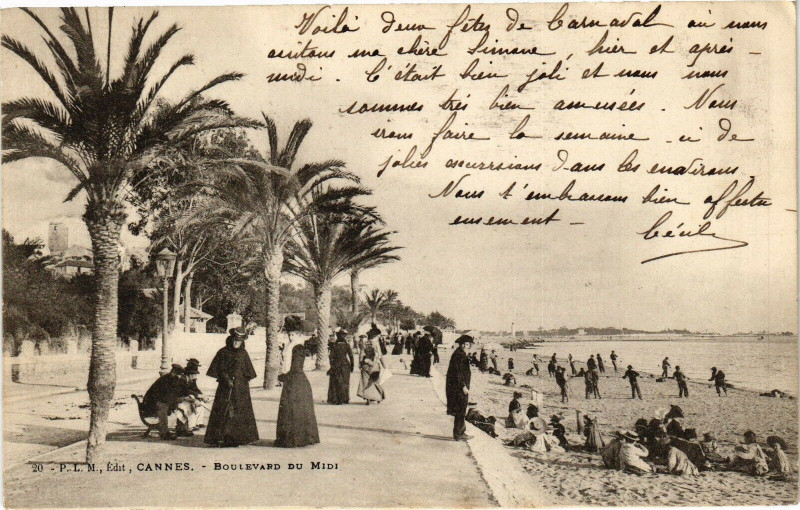 Voilà deux fêtes de Carnaval où nous
assitons ma chère Simone, hier et après-
midi. C'était bien joli et nous nous
sommes très bien amusées. Nous
irons faire la semaine-ci de
jolies excurssions dans les environs.
Nous t'embrassons bien affectu-
eusement-
Cécile
20 - P. L. M., Édit, CANNES. - BOULEVARD DU MIDI